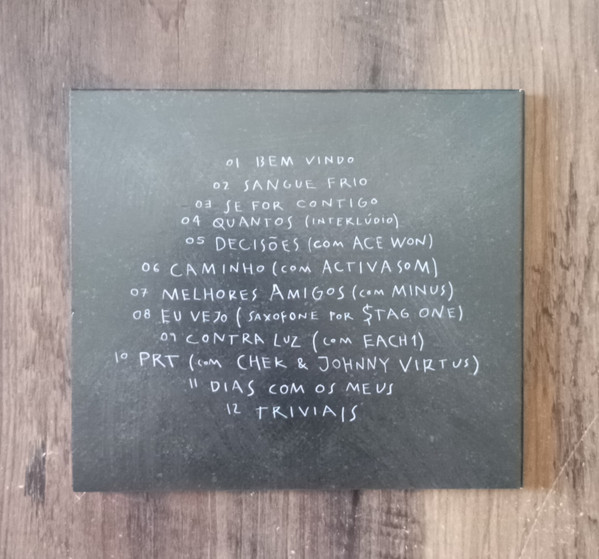 01 BEM VINDO
02 SANGUE FRIO
03 SE FOR CONTIGO
04 QUANTOS (INTERLÚDIO)
05 DECISÕES (com ACE WON)
06 CAMINHO (com ACTIVASOM)
07 MELHORES AMIGOS (com MINUS)
08 EU VEJO (SAXOFONE POR $TAG ONE)
09 CONTRA LUZ (com EACH1)
10 PRT (com CHEK & JOHNNY VIRTUS)
11 DIAS COM OS MEUS
12 TRIVIAIS